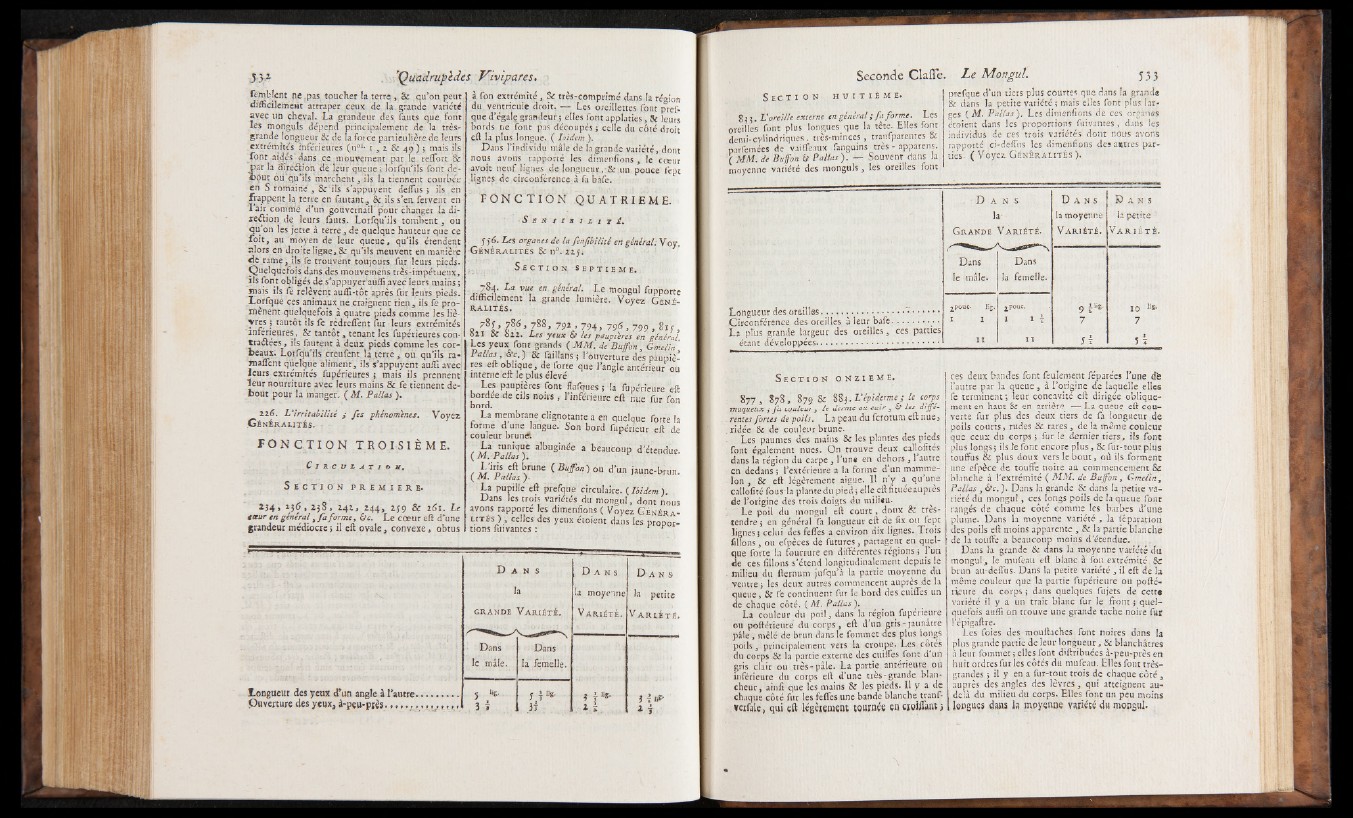 532 Quadrupèdes Vivipares.
semblent ne pas toucher la terre, & qu'on peut
difficilement attraper ceux de la grande variété
avec un cheval. La grandeur des sauts que font
les monguls dépend principalement de la très-
grande longueur & de la force particulière de leurs
extrémités inférieures (nos. 1, 2 & 49); mais ils
sont aidés dans ce mouvement par le ressort &
par la direction de leur queue; lorsqu'ils sont de-
bout ou qu'ils marchent, ils la tiennent courbée
en S romaine, & ils s'appuyent dessus; ils en
frappent la terre en sautant, & ils s'en servent en
l'air comme d'un gouvernail pour changer la di-
rection de leurs sauts. Lorsqu'ils tombent, ou
qu'on les jette à terre, de quelque hauteur que ce
soit, au moyen de leur queue, qu'ils étendent
alors en droite ligne, & qu'ils meuvent en manière
de rame, ils se trouvent toujours sur leurs pieds.
Quelquefois dans des mouvemens très-impétueux,
ils sont obligés de s'appuyer aussi avec leurs mains;
mais ils se relèvent aussi-tôt après sur leurs pieds.
Lorsque ces animaux ne craignent rien, ils se pro-
mènent quelquefois à quatre pieds comme les liè-
vres; tantôt ils se redressent sur leurs extrémités
inférieures, & tantôt, tenant les supérieures con-
tractées, ils sautent à deux pieds comme les cor-
beaux. Lorsqu'ils creusent la terre, ou qu'ils ra-
massent quelque aliment, ils s'appuyent aussi avec
leurs extrémités supérieures; mais ils prennent
leur nourriture avec leurs mains & se tiennent de-
bout pour la manger. (M. Pallas).
226. L'irritabilité; ses phénomènes. Voyez
GÉNÉRALITÉS.
FONCTION TROISIÈME.
CIRCULATION.
SECTION PREMIERE.
234, 236, 238, 242, 244, 259 & 261. Le
cœur en général, sa forme, &c. Le cœur est d'une
grandeur médiocre; il est ovale, convexe, obtus
à son extrémité, & très-comprimé dans la région
du ventricule droit. — Les oreillettes sont pres-
que d'égale grandeur; elles sont applaties, & leurs
bords ne sont pas découpés; celle du côté droit
est la plus longue. (Ibidem).
Dans l'individu mâle de la grande variété, dont
nous avons rapporté les dimensions, le cœur
avoit neuf lignes de longueur, & un pouce sept
lignes de circonférence à sa base.
FONCTION QUATRIEME.
SENSIBILITÉ.
556. Les organes de la sensibilité en général. Voy.
GÉNÉRALITÉS & n°. 225.
SECTION SEPTIEME.
784. La vue en général. Le mongul supporte
difficilement la grande lumière. Voyez GÉNÉ-
RALITÉS.
785, 786, 788, 792, 794, 796, 799, 815,
821 & 822. Les yeux & les paupières en général.
Les yeux sont grands (MM. de Buffon, Gmelin,
Pallas, &c.) & saillans; l'ouverture des paupiè-
res est oblique, de sorte que l'angle antérieur ou
interne est le plus élevé
Les paupières sont flasques; la supérieure est
bordée de cils noirs, l'inférieure est nue sur son
bord.
La membrane clignotante a en quelque sorte la
forme d'une langue. Son bord supérieur est de
couleur brune.
La tunique albuginée a beaucoup d'étendue.
(M. Pallas).
L'iris est brune (Buffon) ou d'un jaune-brun.
(M. Pallas)
La pupille est presque circulaire. (Ibidem).
Dans les trois variétés du mongul, dont nous
avons rapporté les dimensions (Voyez GÉNÉRA-
LITÉS), celles des yeux étoient dans les propor-
tions suivantes:
DANS DANS DANS
la la moyenne la petite
GRANDE VARIÉTÉ. VARIÉTÉ. VARIÉTÉ.
Dans Dans
le mâle. la femelle.
Longueur des yeux d'un angle à l'autre......... 5 lig. 5 1/2 lig.
Ouverture des yeux, à-peu-près...............
Seconde Classe. Le Mongul. 533
SECTION HUITIEME.
833. L'oreille externe en général; sa forme. Les
oreilles sont plus longues que la tête. Elles sont
demi-cylindriques, très-minces, transparentes &
parsemées de vaisseaux sanguins très-apparens.
(MM. de Buffon & Pallas). — Souvent dans la
moyenne variété des monguls, les oreilles sont
presque d'un tiers plus courtes que dans la grande
& dans la petite variété; mais elles sont plus lar-
ges (M. Pallas). Les dimensions de ces organes
étoient dans les proportions suivantes, dans les
individus de ces trois variétés dont nous avons
rapporté ci-dessus les dimensions des autres par-
ties (Voyez GÉNÉRALITÉS).
DANS DANS DANS
la la moyenne la petite
GRANDE VARIÉTÉ. VARIÉTÉ. VARIÉTÉ.
Dans Dans
le mâle. la femelle.
Longueur des oreilles........................ 2 pouc. lig. 2 pouc. 9 1/2 lig. 10 lig.
Circonférence des oreilles à leur base......... 1 1 1 1 1/2 7 7
La plus grande largeur des oreilles, ces parties
étant développées........................ 11 11 5 1/2 5 1/2
SECTION ONZIEME.
877, 878, 879 & 883. L'épiderme; le corps
muqueux; sa couleur; le derme ou cuir, & les diffé-
rentes sortes de poils. La peau du scrotum est nue,
ridée & de couleur brune.
Les paumes des mains & les plantes des pieds
sont également nues. On trouve deux callosités
dans la région du carpe, l'une en dehors, l'autre
en dedans; l'extérieure a la forme d'un mamme-
lon, & est légèrement aigue. Il n'y a qu'une
callosité sous la plante du pied; elle est située auprès
de l'origine des trois doigts du milieu.
Le poil du mongul est court, doux & très-
tendre; en général sa longueur est de six ou sept
lignes; celui des fesses a environ dix lignes. Trois
sillons, ou espèces de sutures, partagent en quel-
que sorte la fourrure en différentes régions; l'un
de ces sillons s'étend longitudinalement depuis le
milieu du sternum jusqu'à la partie moyenne du
ventre; les deux autres commencent auprès de la
queue, & se continuent sur le bord des cuisses un
de chaque côté. (M. Pallas).
La couleur du poil, dans la région supérieure
ou postérieure du corps, est d'un gris-jaunâtre
pâle, mêlé de brun dans le sommet des plus longs
poils, principalement vers la croupe. Les côtés
du corps & la partie externe des cuisses sont d'un
gris clair ou très-pâle. La partie antérieure ou
inférieure du corps est d'une très-grande blan-
cheur, ainsi que les mains & les pieds. Il y a de
chaque côté sur les fesses une bande blanche trans-
versale, qui est légèrement tournée en croissant;
ces deux bandes sont seulement séparées l'une de
l'autre par la queue, à l'origine de laquelle elles
se terminent; leur concavité est dirigée oblique-
ment en haut & en arrière — La queue est cou-
verte sur plus des deux tiers de sa longueur de
poils courts, rudes & rares, de la même couleur
que ceux du corps; sur le dernier tiers, ils sont
plus longs; ils le sont encore plus, & sur-tout plus
touffus & plus doux vers le bout, où ils forment
une espèce de touffe noire au commencement &
blanche à l'extrémité (MM. de Buffon, Gmelin,
Pallas, &c.). Dans la grande & dans la petite va-
riété du mongul, ces longs poils de la queue sont
rangés de chaque côté comme les barbes d'une
plume. Dans la moyenne variété, la séparation
des poils est moins apparente, & la partie blanche
de la touffe a beaucoup moins d'étendue.
Dans la grande & dans la moyenne variété du
mongul, le museau est blanc à son extrémité &
brun au-dessus. Dans la petite variété, il est de la
même couleur que la partie supérieure ou posté-
rieure du corps; dans quelques sujets de cette
variété il y a un trait blanc sur le front; quel-
quefois aussi on trouve une grande tache noire sur
l'épigastre.
Les soies des moustaches sont noires dans la
plus grande partie de leur longueur, & blanchâtres
à leur sommet; elles sont distribuées à-peu-près en
huit ordres sur les côtés du museau. Elles sont très-
grandes; il y en a sur-tout trois de chaque côté,
auprès des angles des lèvres, qui atteignent au-
delà du milieu du corps. Elles sont un peu moins
longues dans la moyenne variété du mongul.